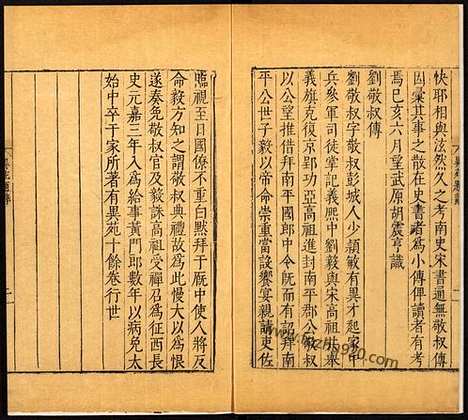 快耶相與泫然久之考南史宋書通無敬叔傳
因彙其事之散在史書者為小傳俾讀者有考
焉己亥六月望武原胡震亨識
劉敬叔傳
劉敬叔字敬叔彭城人少穎敏有異才起家中
兵參軍司徒掌記義熙中劉毅與宋高祖共舉
義旗克復京郢功亞高祖進封南平郡公敬叔
以公望推借拜南平國郎中令既而有詔拜南
平公世子毅以帝命崇重當設饗宴親請吏佐
臨視至日國僚不重白默拜于厩中使人將反
命毅方知之謂敬叔典禮故為此慢大以為恨
遂奏免敬叔官及毅誅高祖受禪召為征西長
史元嘉三年入為給事黃門郎數年以病免太
始中卒于家所著有異苑十餘卷行世